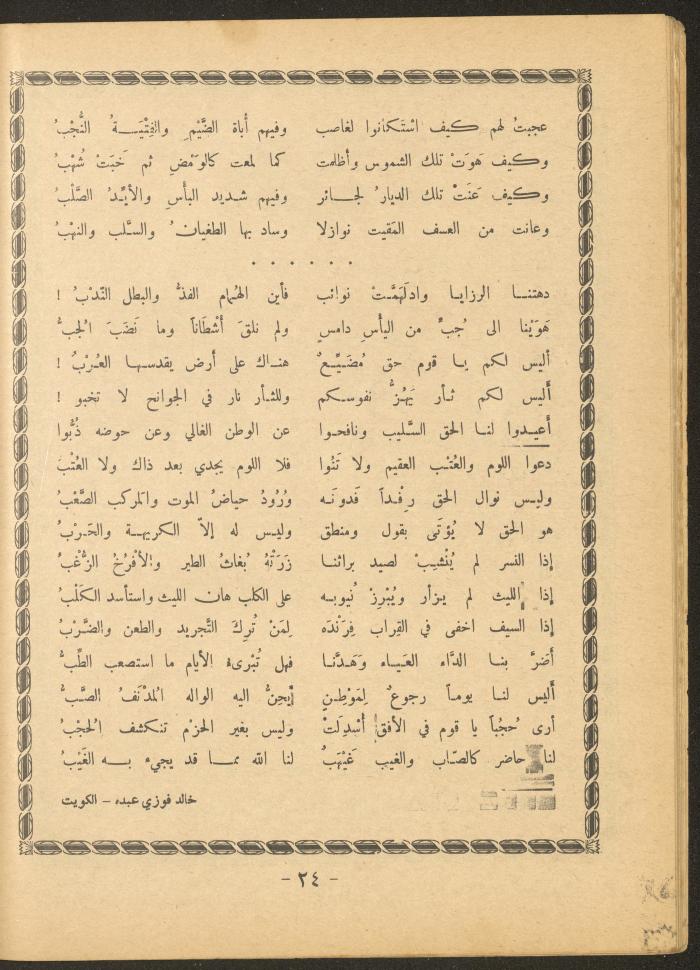 عجبتُ لهم كيف اسْتَكانوا لغاصب وفيهم أُباة الضَّيْمِ والفِتْيَةُ النُّجْبُ
وكيف هَوَتْ تلك الشموس وأظلمت كما لمعت كالوَمْضِ ثم خَبَتْ شُهْبُ
وكيف عَنَتْ تلك الديارُ لجائر وفيهم شديد البأسِ والأيِّدُ الصَّلْبُ
وعانت من العسف المَقيت نوازلا وساد بها الطغيانُ والسَّلب والنهْبُ
. . . . . .
دهتنا الرزايا وادلَهَمَّتْ نوائب فأين الهُمام الفذُّ والبطل النَّدْبُ !
هَوَيْنا الى جُبٍّ من اليأسِ دامسٍ ولم نلقَ أشْطَاناً وما نَضَبَ الجبُّ
أليس لكم يا قوم حق مُضَيَّعٌ هناك على أرض يقدسها العُرْبُ !
أليس لكم ثأر يَهُزُّ نفوسكم وللثأر نار في الجوانح لا تخبو !
أعيدوا لنا الحق السَّليب ونافحوا عن الوطن الغالي وعن حوضه ذُبُّوا
دعوا اللوم والعُتْب العقيم ولا تَنُوا فلا اللوم يجدي بعد ذاك ولا العُتْبُ
وليس نوال الحق رِفْداً فَدونَه وُرُودُ حياضُ الموت والمركب الصَّعْبُ
هو الحق لا يُؤتَى بقول ومنطق وليس له إلاّ الكريهة والحَرْبُ
إذا النسر لم يُنْشِبْ لصيد براثنا زَرَتْهُ بُغاثُ الطير والأفْرُخُ الزُّغْبُ
إذا الليث لم يزأر ويُبْرِزْ نُيوبه على الكلب هان الليث واستأسد الكَلْبُ
إذا السيف اخفى في القِراب فِرَنْدَه لِمَنْ تُرِكَ التَّجريد والطعن والضَّرْبُ
أضَرَّ بنا الدَّاء العَياء وَهَدَّنا فهل تُبْرىءُ الأيام ما استصعب الطِّبُّ
أليس لنا يوماً رجوعٌ لِمَوْطِنٍ يَحِنُّ اليه الواله المُدْنَفُ الصَّبُّ
أرى حُجُباً يا قوم في الأفق أُسْدِلَتْ وليس بغير الحزمْ تنكشف الحُجْبُ
لنا حاضر كالصّاب والغيب غَيْهَبٌ لنا الله مما قد يجيء به الغَيْبُ
خالد فوزي عبده – الكويت
- ٢٤ -